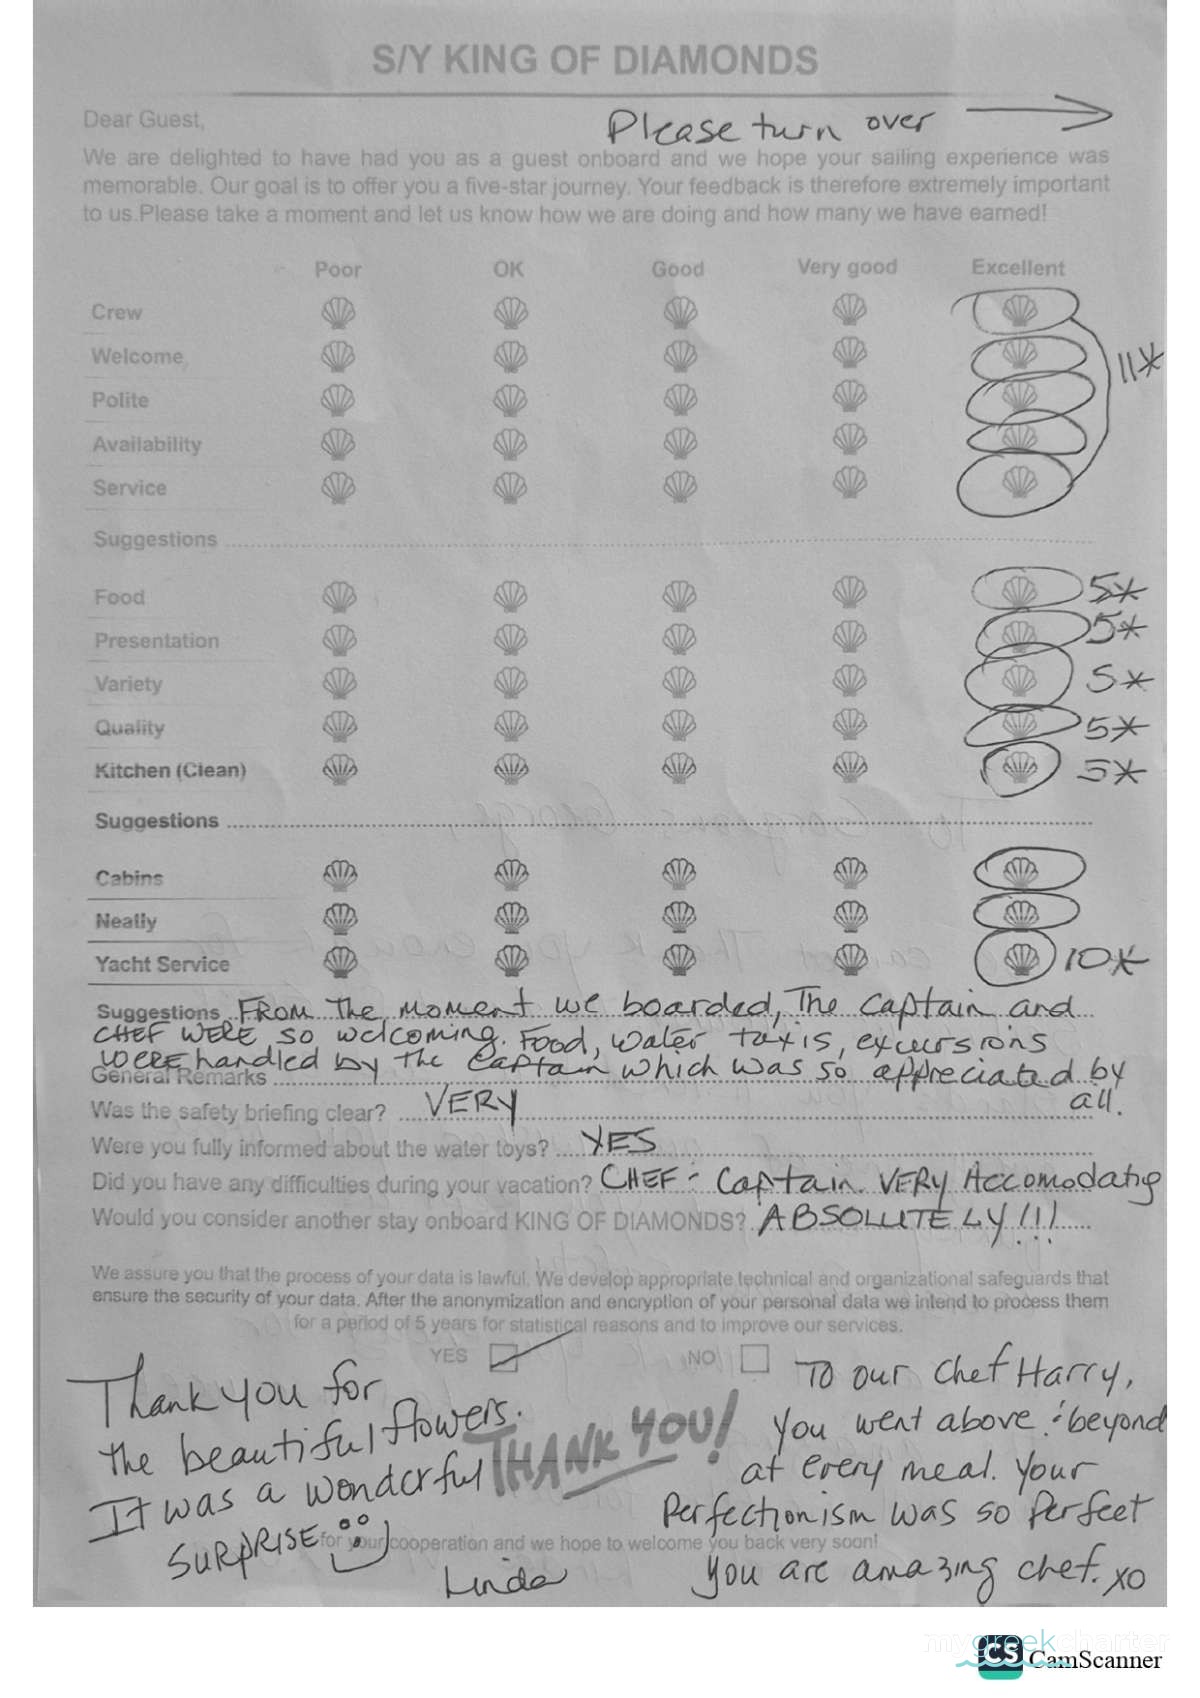 S/Y KING OF DIAMONDS
Dear Guest,
Please turn over
We are delighted to have had you as a guest onboard and we hope your sailing experience was
memorable. Our goal is to offer you a five-star journey. Your feedback is therefore extremely important
to us.Please take a moment and let us know how we are doing and how many we have earned!
Poor OK Good Very good Excellent
Crew
Welcome
11*
Polite
Availability
Service
Suggestions
Food 5*
Presentation 5*
Variety 5*
Quality 5*
Kitchen (Clean) 5*
Suggestions
Cabins
Neatly
Yacht Service 10*
Suggestions FROM The moment we boarded, The captain and
CHEF WERE so welcoming. Food, water taxis, excursions
WERE handled by the captain which was so appreciated by
all.
General Remarks
Was the safety briefing clear? VERY
Were you fully informed about the water toys? YES
Did you have any difficulties during your vacation? CHEF - Captain. VERY Accomodatig
Would you consider another stay onboard KING OF DIAMONDS? ABSOLUTELY!!!
We assure you that the process of your data is lawful. We develop appropriate technical and organizational safeguards that
ensure the security of your data. After the anonymization and encryption of your personal data we intend to process them
for a period of 5 years for statistical reasons and to improve our services.
YES NO
Thank you for
the beautiful flowers.
It was a wonderful
SURPRISE
THANK YOU!
for your cooperation and we hope to welcome you back very soon!
Linda
To our chef Harry,
you went above & beyond
at every meal. Your
Perfectionism was so perfect
you are amazing chef. xo
mygreekcharter
CS CamScanner